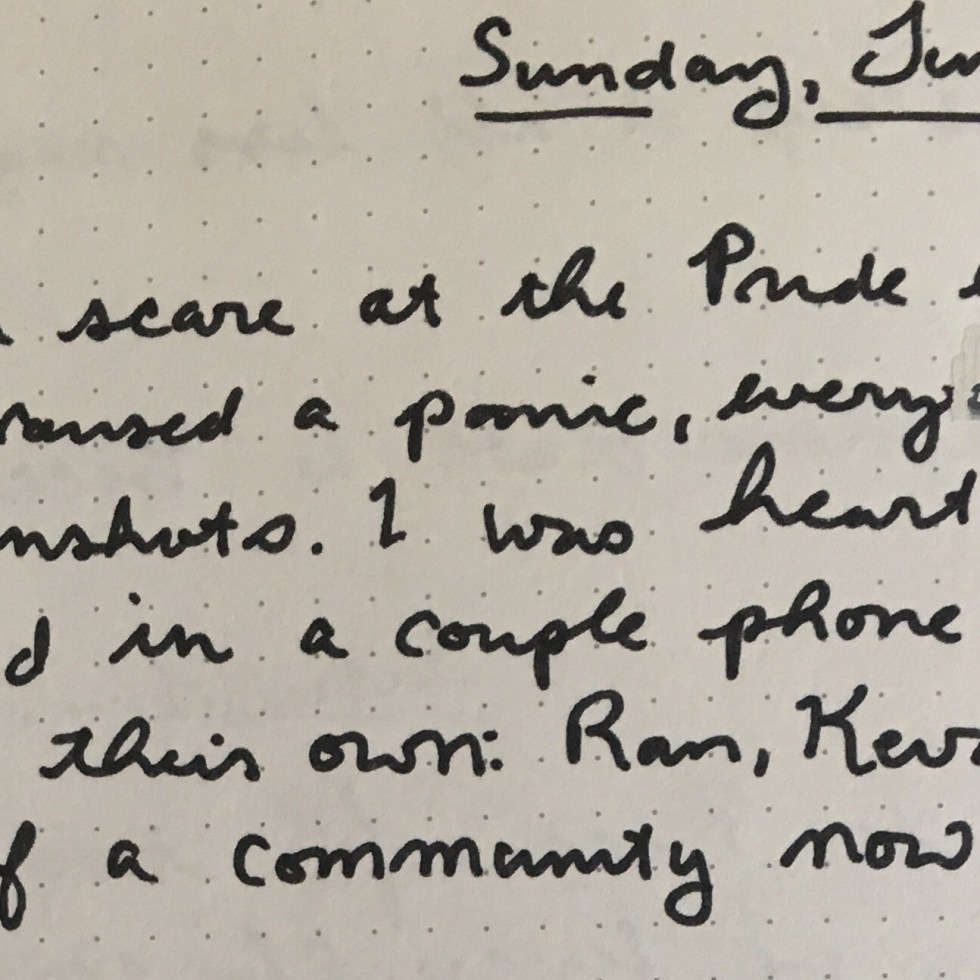 Sunday, Jun
scare at the Pride
caused a panic, every
nshots. I was heart
d in a couple phone
their own: Ran, Kev
f a community now